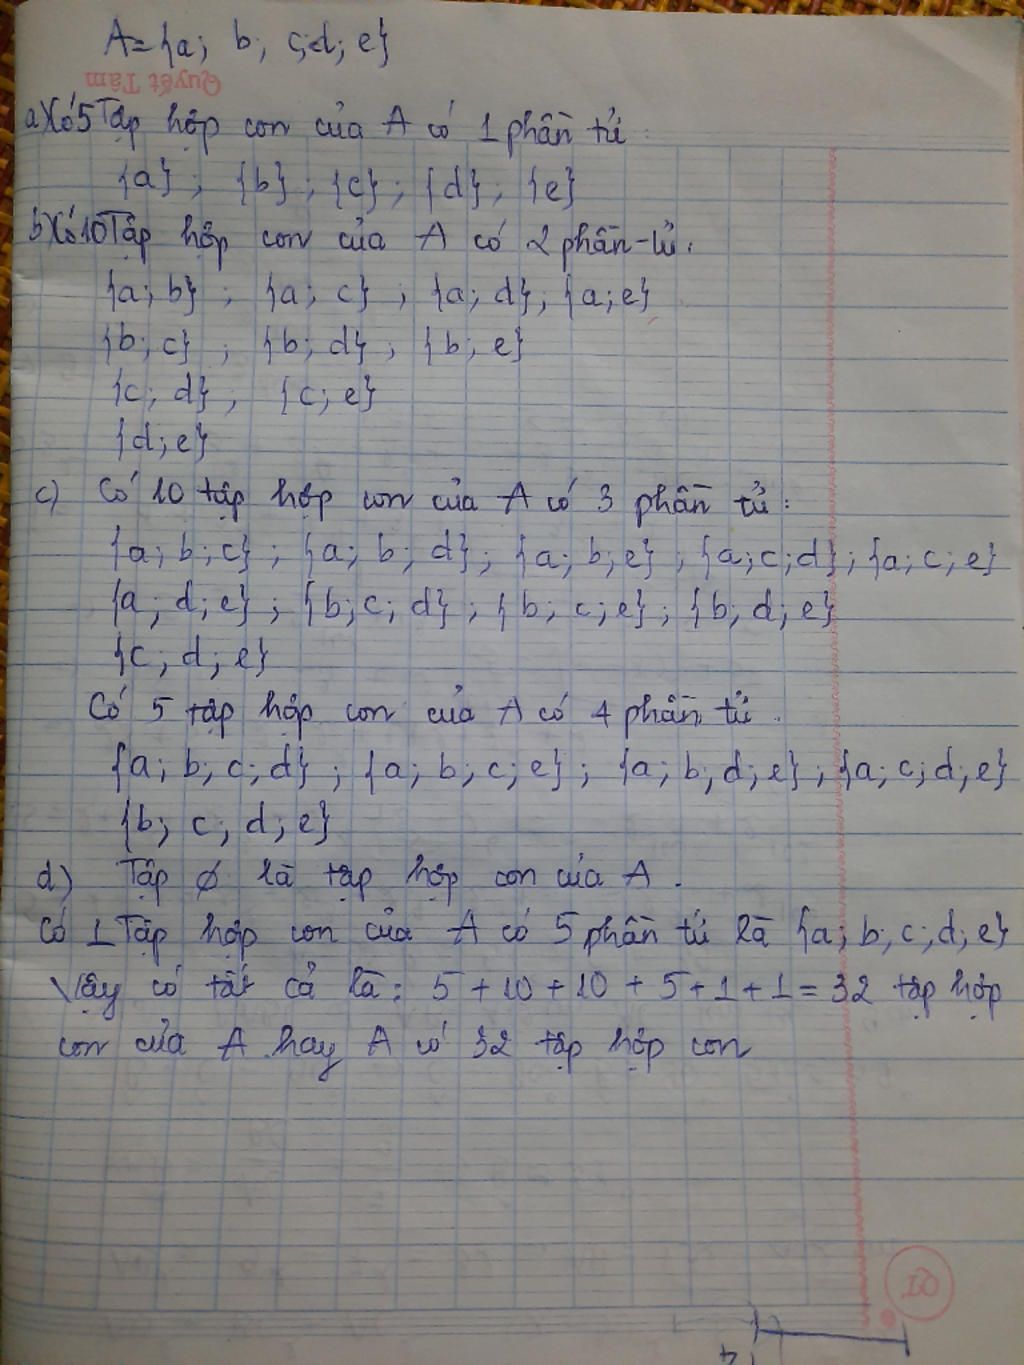 A = {a; b; c; d; e}
Quyết Tâm
a) Có 5 Tập hợp con của A có 1 phần tử:
{a} ; {b} ; {c} ; {d} ; {e}
b) Có 10 Tập hợp con của A có 2 phần tử:
{a; b} ; {a; c} ; {a; d} ; {a; e}
{b; c} ; {b; d} ; {b; e}
{c; d} ; {c; e}
{d; e}
c) Có 10 tập hợp con của A có 3 phần tử:
{a; b; c} ; {a; b; d} ; {a; b; e} ; {a; c; d} ; {a; c; e}
{a; d; e} ; {b; c; d} ; {b; c; e} ; {b; d; e}
{c; d; e}
Có 5 tập hợp con của A có 4 phần tử.
{a; b; c; d} ; {a; b; c; e} ; {a; b; d; e} ; {a; c; d; e}
{b; c; d; e}
d) Tập ø là tập hợp con của A.
Có 1 Tập hợp con của A có 5 phần tử là {a; b; c; d; e}
Vậy có tất cả là: 5 + 10 + 10 + 5 + 1 + 1 = 32 tập hợp
con của A hay A có 32 tập hợp con